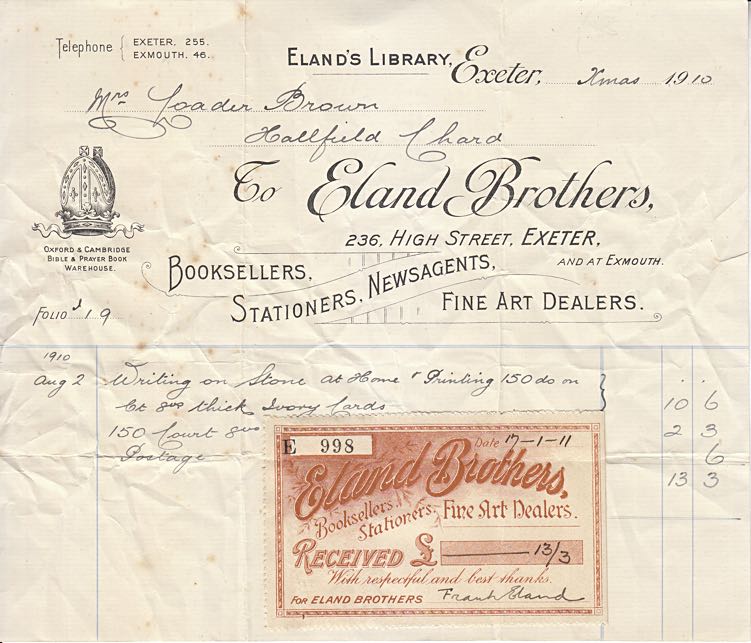 Telephone { EXETER. 255.
EXMOUTH. 46.
ELAND'S LIBRARY, Exeter, Xmas 1910
Mrs Loader Brown
Hallfield Chard
To Eland Brothers,
236, HIGH STREET, EXETER,
AND AT EXMOUTH.
OXFORD & CAMBRIDGE
BIBLE & PRAYER BOOK
WAREHOUSE.
BOOKSELLERS,
STATIONERS, NEWSAGENTS,
FINE ART DEALERS.
FOLIO J 19
1910
Aug 2 Writing on Stone at Home & Printing 150 do on
Ct 8vo thick Ivory Cards 10 6
150 Court 8vo 2 3
Postage 6
13 3
E 998
Date 17-1-11
Eland Brothers,
Booksellers,
Stationers, Fine Art Dealers.
RECEIVED £ 13/3
With respectful and best thanks.
FOR ELAND BROTHERS Frank Eland